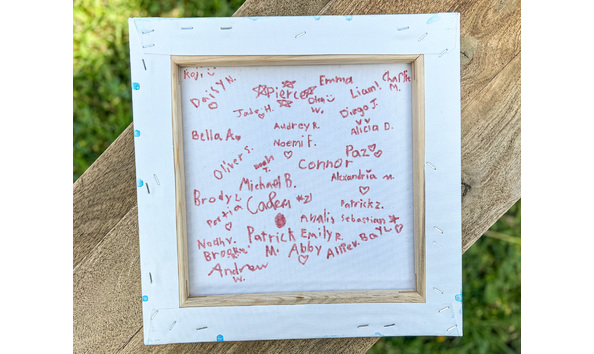 Koji
Daisy N.
Pierce
Emma
Charlie M.
Liam!
Jade H.
W.
Diego J.
Bella A.
Audrey R.
Alicia D.
Noemi F.
Oliver S.
Paz
Connor
Michael B.
Alexandria M.
Brody L
Caden #2!
Patrick Z.
Portia
Analis
Sebastian
Noah V.
Patrick M.
Emily R.
Bay L.
Brooks
Abby
Allie V.
Andrew W.